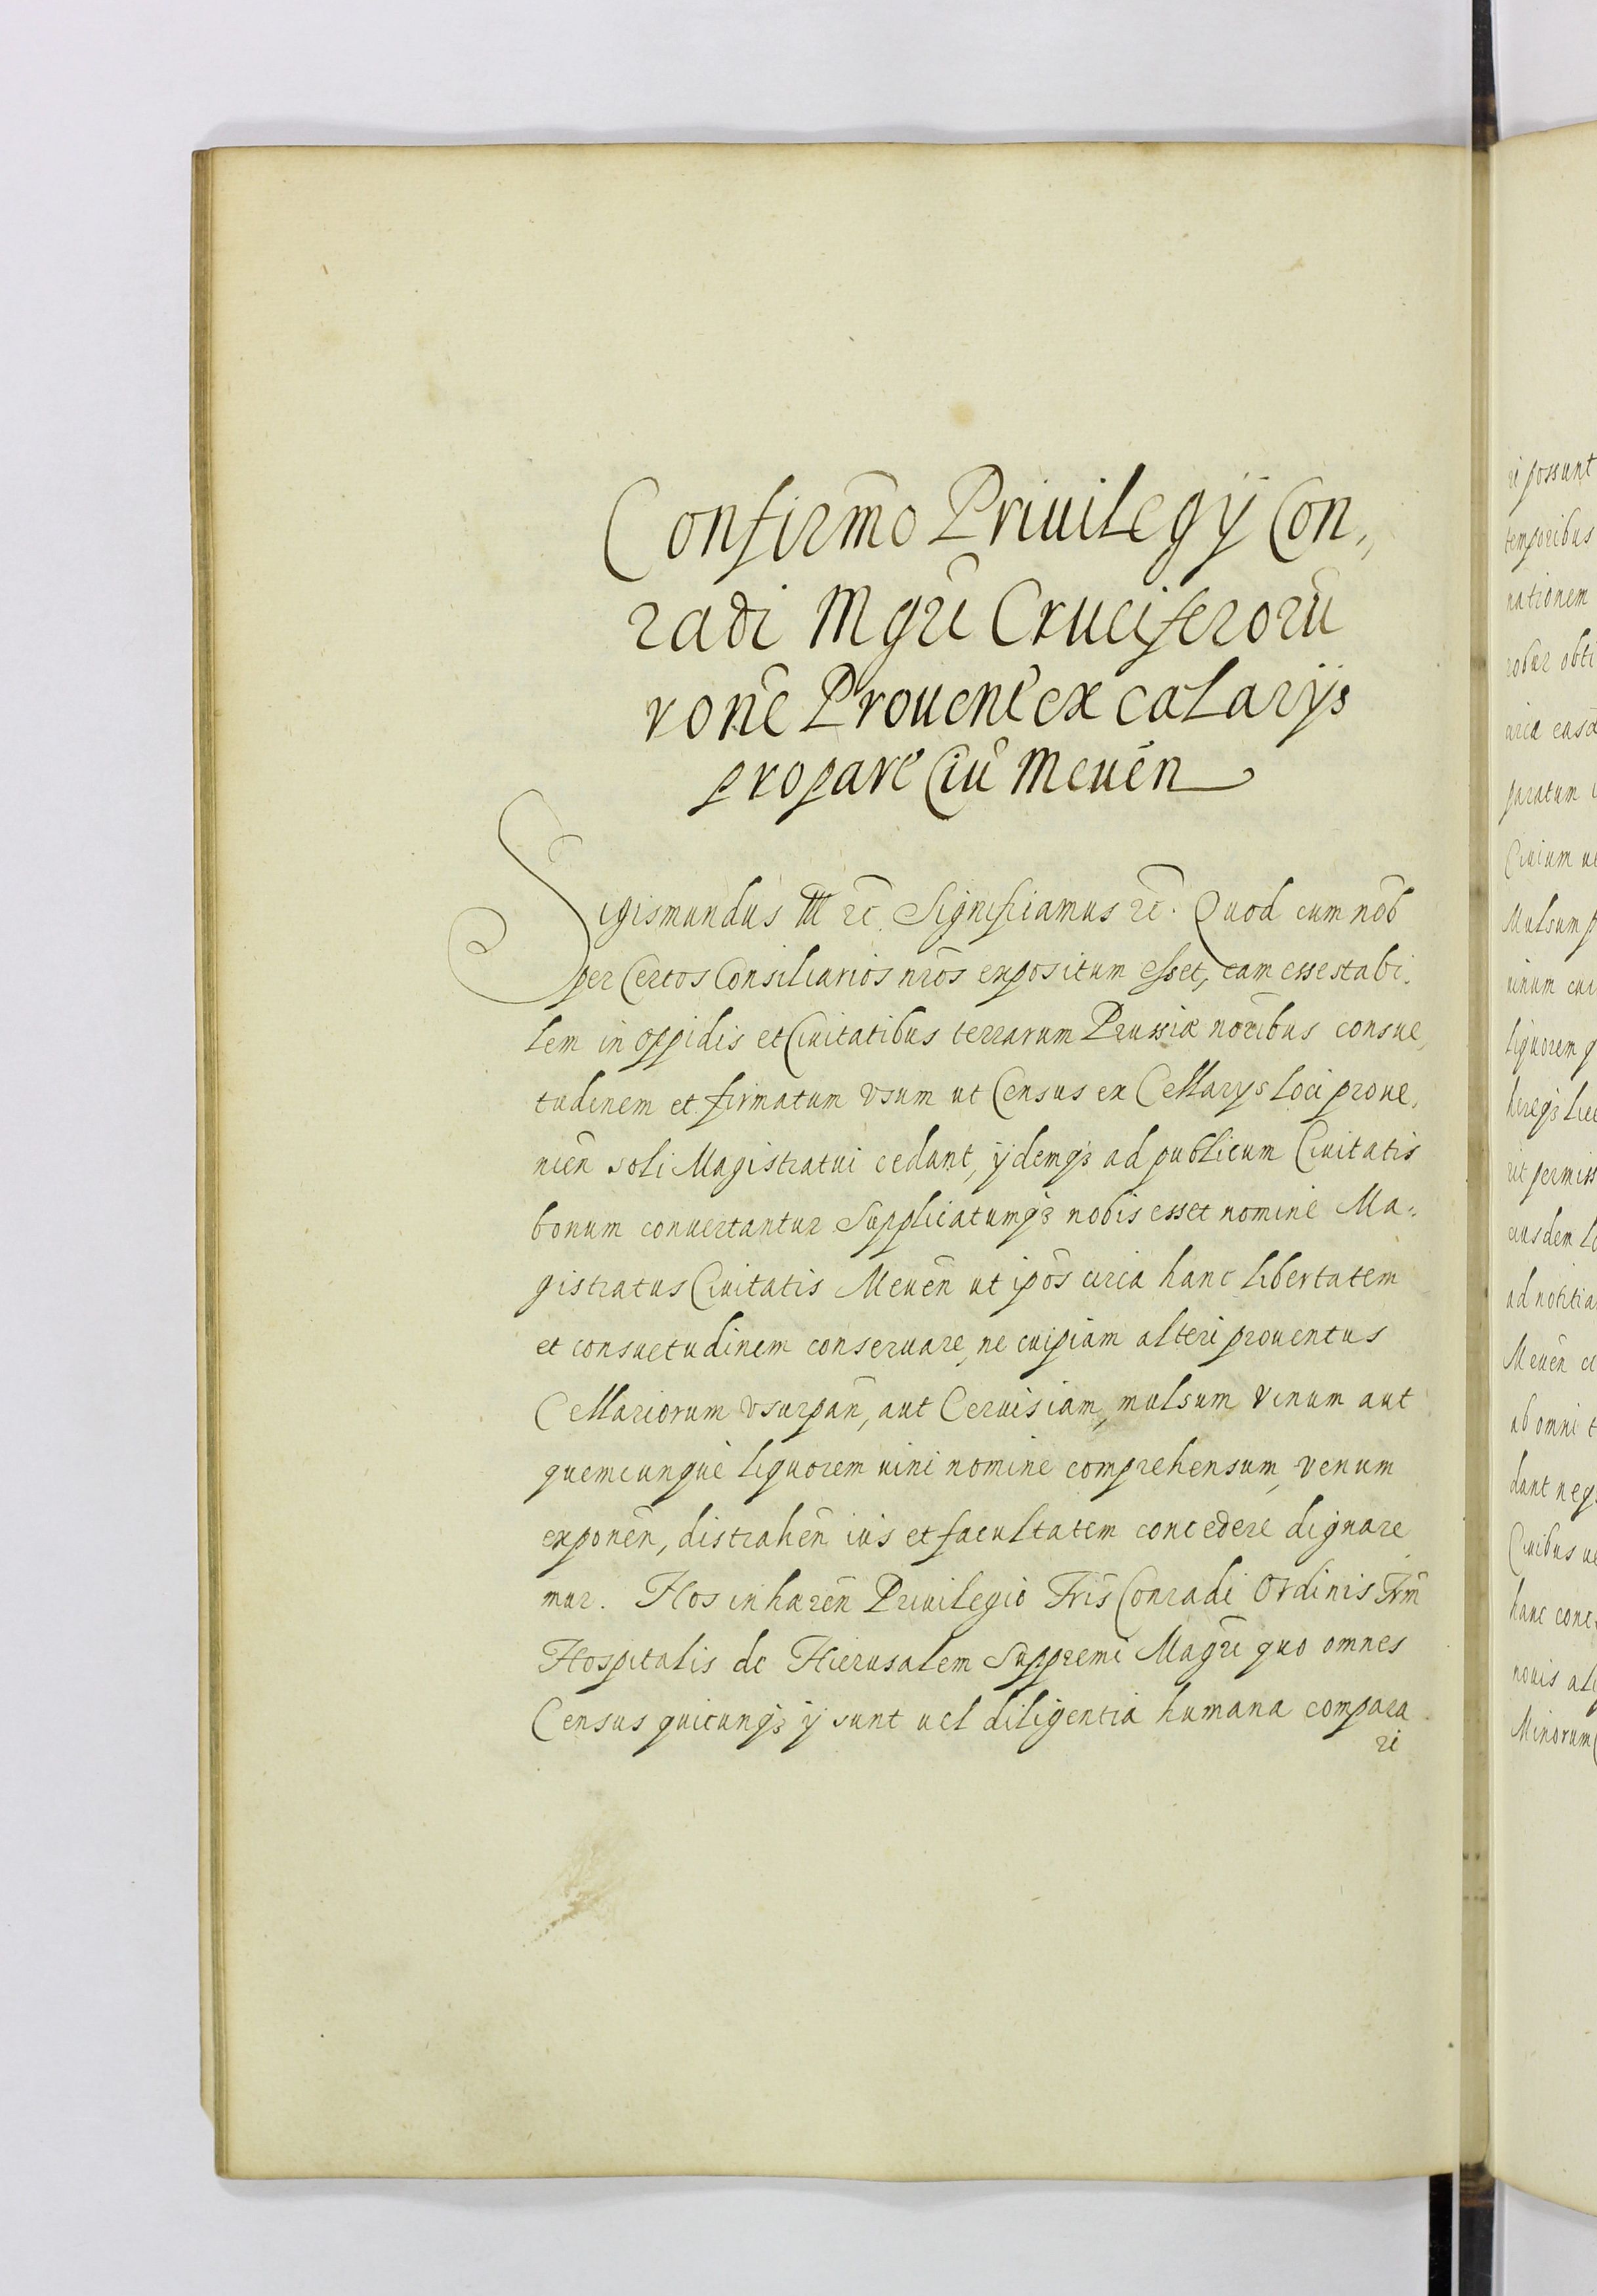 Confirmo Priuilegÿ Con,,
radi Mgri Cruciferorū
rone Prouent̄ ex calarÿs
propare Ciū Meuēn
Sigismundus III ꝛc. Significamus ꝛc. Quod cum nōb
per Certos Consiliarios nr̄os expositum esset, eam esse stabi,
lem in oppidis et Ciuitatibus terrarum Prussiæ nōribus consue,
tudinem et firmatum vsum ut Census ex Cellarys loci proue,
niēn soli Magistratui cedant, ÿdemqꝫ ad publicum Ciuitatis
bonum conuertantur Supplicatumqꝫ nobis esset nomine Ma,
gistratus Ciuitatis Meuēn ut ip̄os circa hanc libertatem
et consuetudinem conseruare, ne cuipiam alteri prouentus
Cellariorum vsurpan̄, aut Ceruisiam, mulsum vinum aut
quemcunque liquorem uini nomine comprehensum, venum
exponēn, distrahēn ius et facultatem concedere dignare
mur. Nos inhærēn Priuilegio Fris̄ Conradi Ordinis Frm̄
Hospitalis de Hierusalem Suppremi Magr̄i quo omnes
Census quicunqꝫ ÿ sunt uel diligentia humana compara
ri
ri possunt
temporibus
nationem
robur obti
circa easd
paratum
Ciuium ue
Mulsum p
uinum cui
liquorem q
hereqꝫ lice
ut permiss
eiusdem lo
ad notitia
Meuēn ci
ab omni t
dant neqꝫ
Ciuibus ue
hanc conc
nouis ali
Minorum